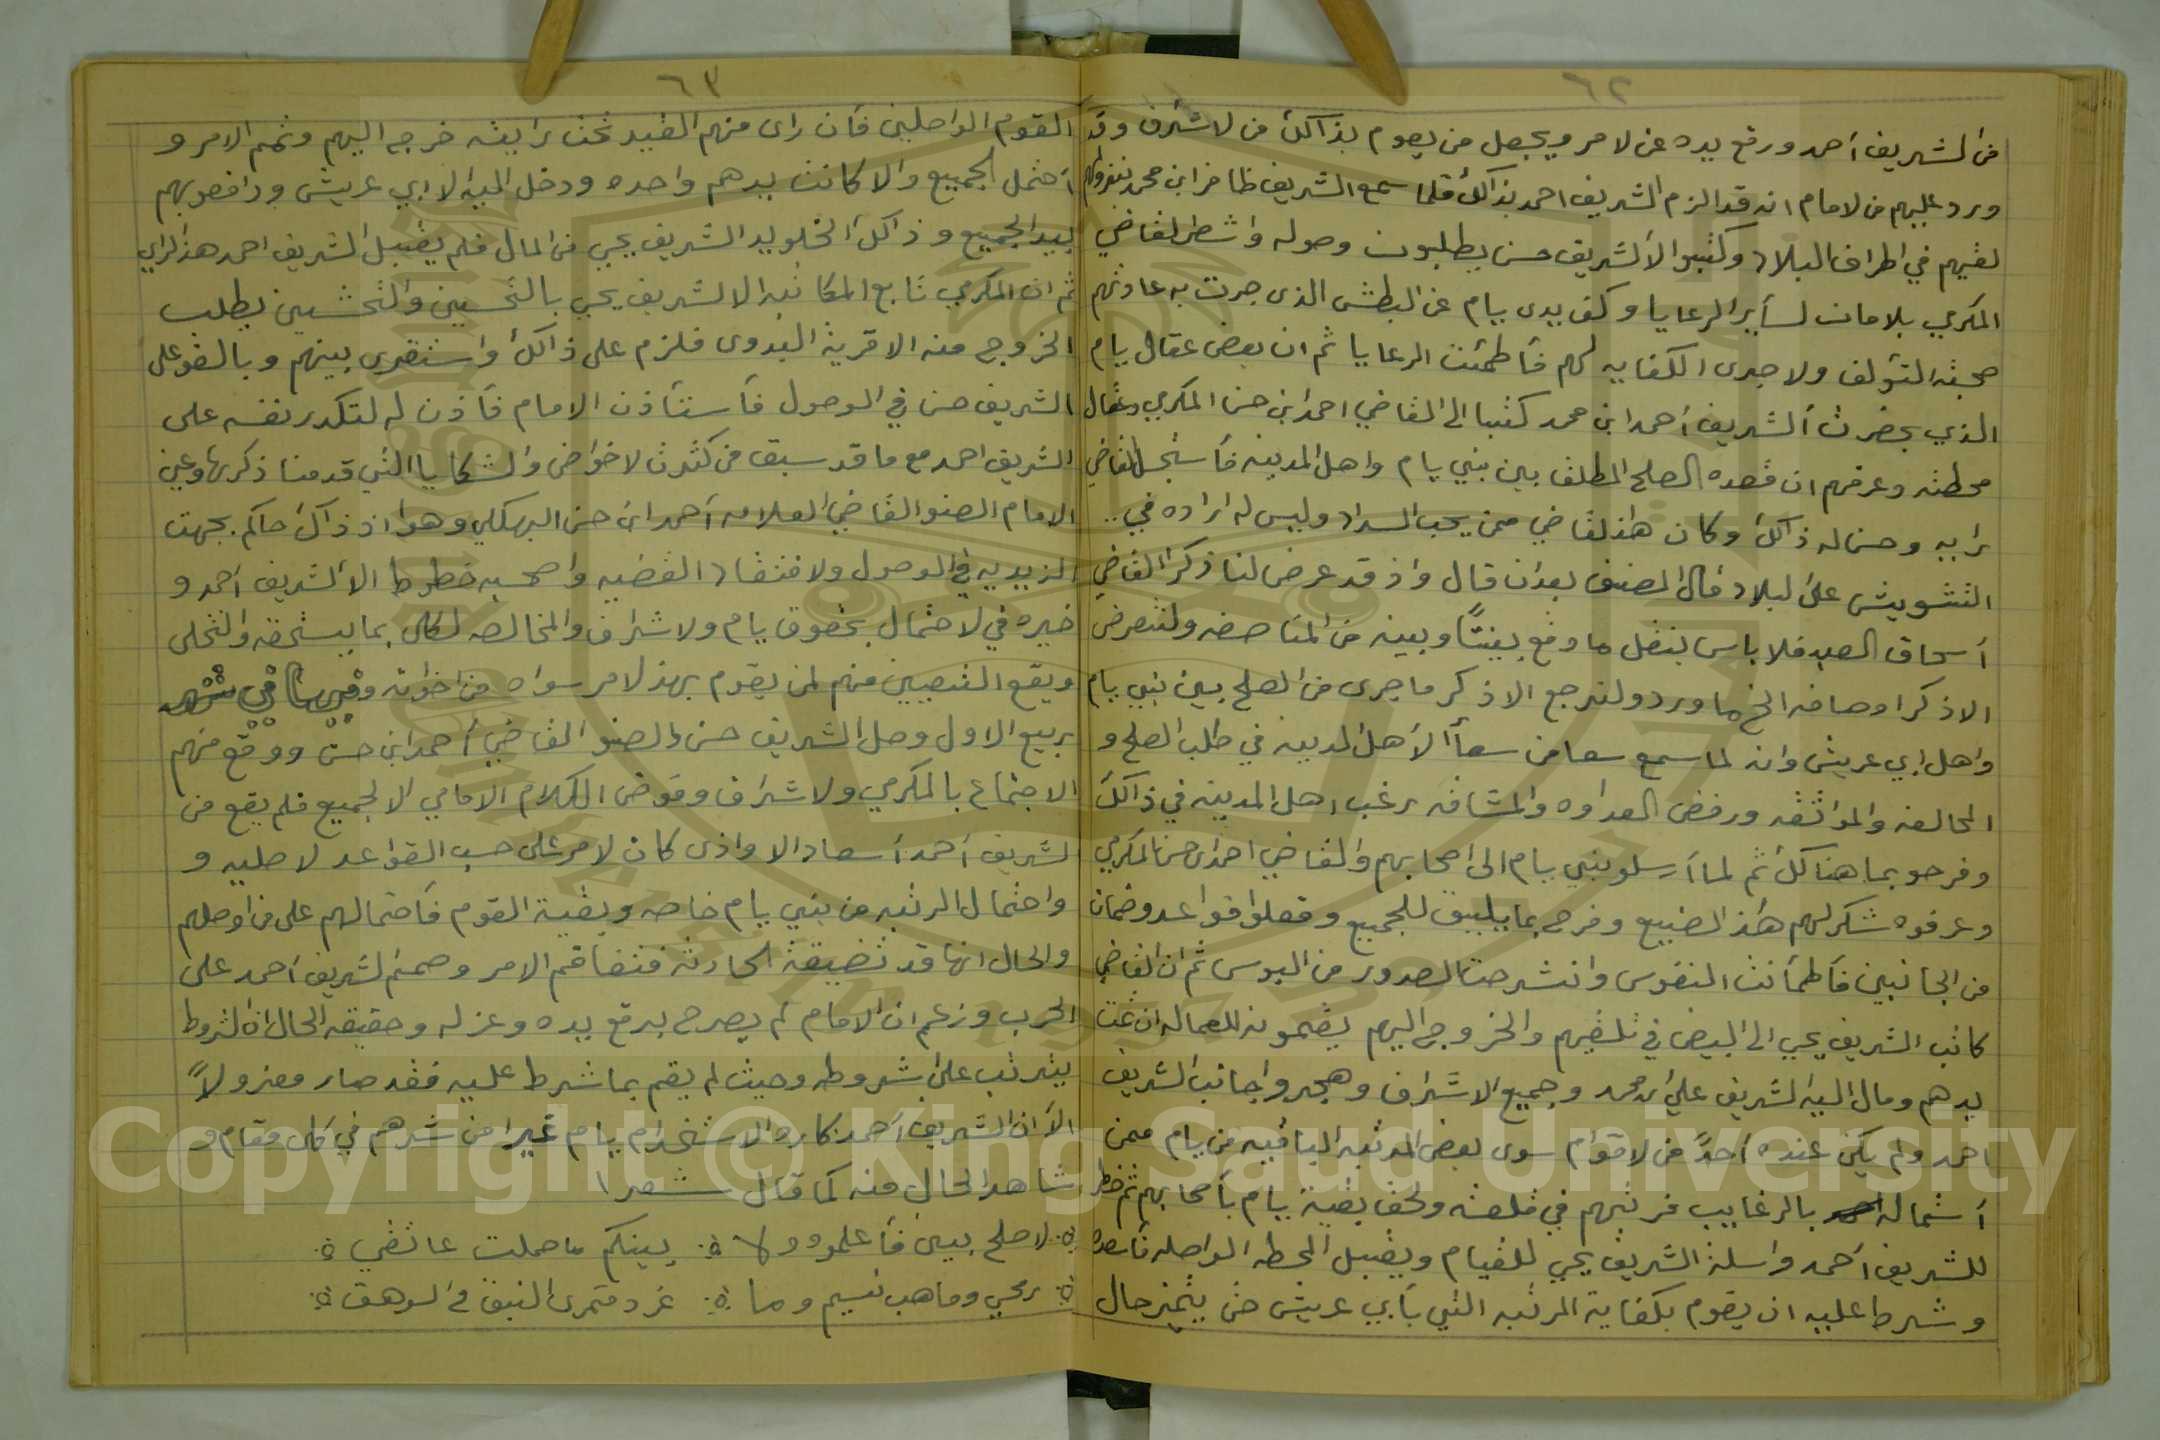 ٦٢
من الشريف أحمد ورفع يده عن لامر ويجعل من يقوم بذالك من لاشرف وقد
ورد عليهم من لامام انه قد الزم الشريف احمد بذالك فلما سمع الشريف ظافر ابن محمد
لقيهم في اطراف البلاد وكتبو الا الشريف حسن يطلبون وصوله واشطر لقاضي
المكرمي بلامان لسأير الرعايا وكف يدي يام عن البطش الذي جرت به عادتهم
صحبته التؤلف ولاجرى الكفايه لهم فأطمئنت الرعايا ثم ان بعض عقال يام
الذي بحضرت ألشريف أحمد ابن محمد كتبا الى القاضي احمد ابن حسن المكرمي وعقال
محطته وعرفهم ان قصده الصلح المطلق بين بني يام واهل المدينه فأستحل القاضي
رايه وحسن له ذالك وكان هاذلقاضي ممن يحب السداد وليس له اراده في ..
التشويش على لبلاد قال المصنف بعدان قال واذ قد عرض لنا ذكر القاضي
أسحاق العبد فلا باس بنقل ما وقع بيننتاً وبينه من المناصفه ولنتعرض
الا ذكر اوصافه الخ ما ورد ولنرجع الا ذكر ما جرى من الصلح بين بني يام
واهل ابي عريش وانه لما سمع سعا من سعاأ لأهل المدينه في طلب الصلح و
المحالفه والمواثقه ورفض العداوه والمشاقه رغب اهل المدينه في ذالك
وفرحو بما هنالك ثم لما أرسلو بني يام الى اصحابهم والقاضي احمد ابن حسن المكرمي
وعرفوه شكر لهم هاذ الصنيع وفرح بما يليق للجميع وفعلوا قواعد وضمان
من الجانبين فأطمأنت النفوس وانشرحت الصدور من البوس ثم ان القاضي
كاتب الشريف يحيى الى البيض في تلقيهم والخروج اليهم يضمونه للعماله ان تمت
يدهم ومال اليه الشريف علي ابن محمد وجميع الاشراف وهجروا جانب الشريف
احمد ولم يكن عنده أحداً من لاقوام سوى بعض المرتبه الباقيه من يام ممن
أشماله بالرغايب فرتبهم في قلعته ولحق بقية يام بأصحابهم ثم خطر
للشريف أحمد واسلة الشريف يحيى للقيام ويقبل المحطه الواصله فأسعده
وشرط عليه ان يقوم بكفاية المرتبه التي بأبي عريش حتى يتميز حال
٦٣
القوم الواصلين فأن راى منهم القيد تحت رايته خرج اليهم وتمم الامر و
أحتمل الجميع والا كانت يدهم واحده ودخل اليه الا ابي عريش ودافعو بهم
بيد الجميع وذالك الخلو يد الشريف يحيى من المال فلم يقبل الشريف احمد هذالراي
ثم ان المكرمي تابع المكاتبه الا لشريف يحيى بالتحسين والتخشين يطلب
الخروج منه الا قرية البدوي فلزم على ذالك واستقرى بينهم وبالغو على
الشريف حسن في الوصول فأستأذن الامام فأذن له لتكدر نفسه على
الشريف احمد مع ما قد سبق من كثرت لاخواض والشكايا التي قدمنا ذكرها وعين
الامام الصنو القاضي العلامه أحمد ابن حسن البهكلي وهو اذ ذاك حاكم بجهت
الزيديه في الوصول ولافتقاد القضيه واصحبه خطوط الا ألشريف أحمد و
خيره في لاحتمال بحقوق يام ولاشراف والمخالصه لكل بما يستحقه والتخلى
ويقع التعيين منهم لمن يقوم بهذلامر سواه من اخوانه وفي ثاني شهر
ربيع الاول وصل الشريف حسن والصنو القاضي أحمد ابن حسن ووقع منهم
الاجتماع بالمكرمي ولاشراف وفوض الكلام الامامي الا لجميع فلم يقع من
الشريف أحمد أسعاد الا واذى كان لامر على حسب القواعد لاصليه و
واحتمال المرتبه من بني يام خاصه وبقية القوم فأحتمالهم على من اوصلهم
والحال انها قد تضيقة الحادثه فتفاقم الامر وصمم لشريف أحمد على
الحرب وزعم ان الامام لم يصرح برفع يده وعزله وحقيقه الحال ان الشروط
يترتب على شروطه وحيث لم يقم بما شرط عليه فقد صار معزولاً
الا ان الشريف أحمد كاره الاستخدام يام تحيرا من شرهم في كل مقام و
شاهد الحال منه كما قال شعرا
لاصلح بيني فأعلموه ولا ۞ بينكم ما حملت عاتقي ۞
رمحي وما هب نسيم وما ۞ غرد قمرى النبق والوهق ۞
Copyright © King Saud University